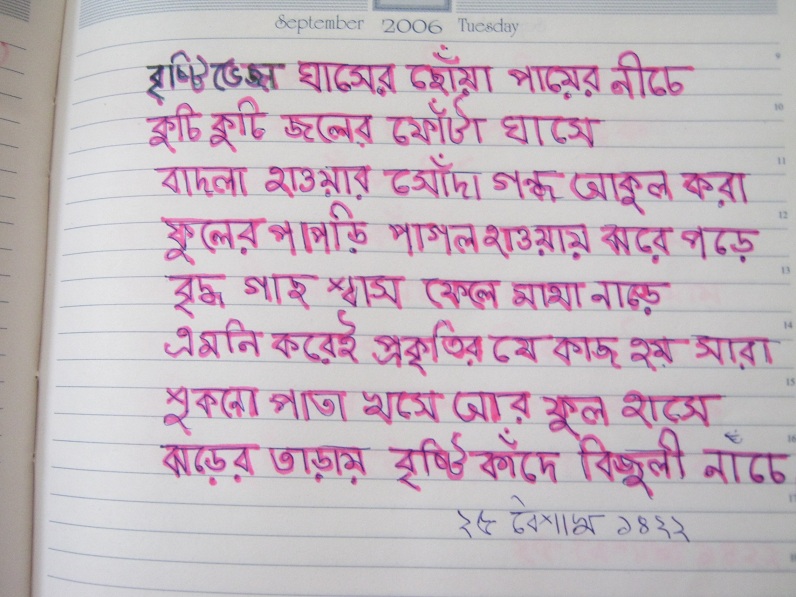 September 2006 Tuesday
বৃষ্টি ভেজা ঘাসের ছোঁয়া পায়ের নীচে
কুচি কুচি জলের ফোঁটা ঘাসে
বাদলা হাওয়ার সোঁদা গন্ধ আকুল করা
ফুলের পাপড়ি পাগল হাওয়ায় ঝরে পড়ে
বৃদ্ধ গাছ শ্বাস ফেলে মাথা নাড়ে
এমনি করেই প্রকৃতির যে কাজ হয় সারা
শুকনো পাতা খসে আর ফুল হাসে
ঝড়ের তাড়ায় বৃষ্টি কাঁদে বিজুলী নাচে
২৫ বৈশাখ ১৪২২
9
10
11
12
13
14
15
16
17